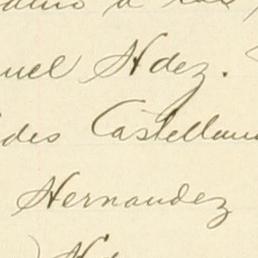 a los
uel Hdez.
des Castellan
Hernandez